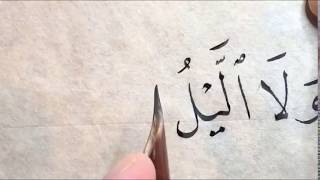 وَلَا ٱلَّيْلُ